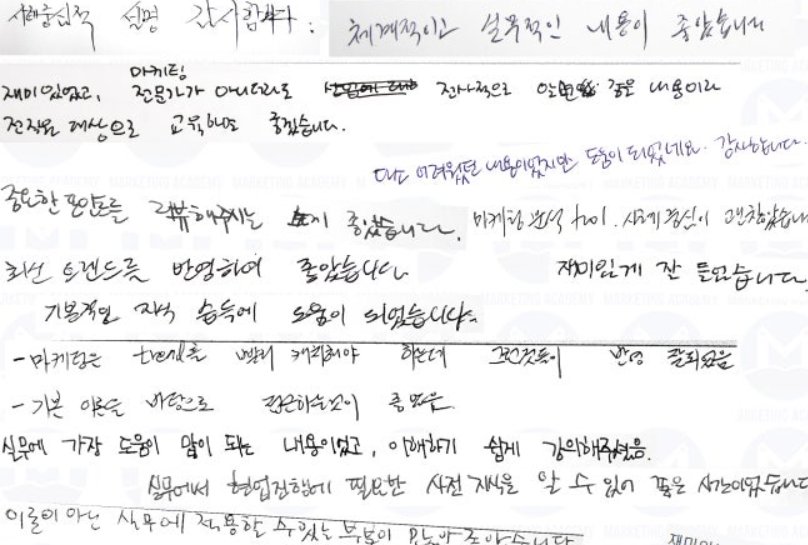 사례중심적 설명 감사합니다.
체계적이고 실무적인 내용이 좋았습니다
마케팅
재미있었고, 전문가가 아니더라도 전사적으로 알면 좋은 내용이라
전직원 대상으로 교육해도 좋겠습니다.
다소 어려웠던 내용이었지만 도움이 되었네요. 감사합니다.
중요한 포인트를 리뷰해주시는 게 좋았습니다.
마케팅 분석 tool, 사례 분석이 괜찮았습니
최신 트렌드를 반영하여 좋았습니다
재미있게 잘 들었습니다.
기본적인 지식 습득에 도움이 되었습니다.
- 마케팅은 trend를 빨리 캐치해야 하는데 그런것들이 반영 잘되었음
- 기본 이론을 바탕으로 접근하는것이 좋았음.
실무에 가장 도움이 많이 되는 내용이었고, 이해하기 쉽게 강의해주셨음.
실무에서 현업진행에 필요한 사전 지식을 알 수 있어 좋은 시간이었습니다
이론이 아닌 실무에 적용할 수 있는 부분이 많아 좋았습니다
MARKETING ACADEMY